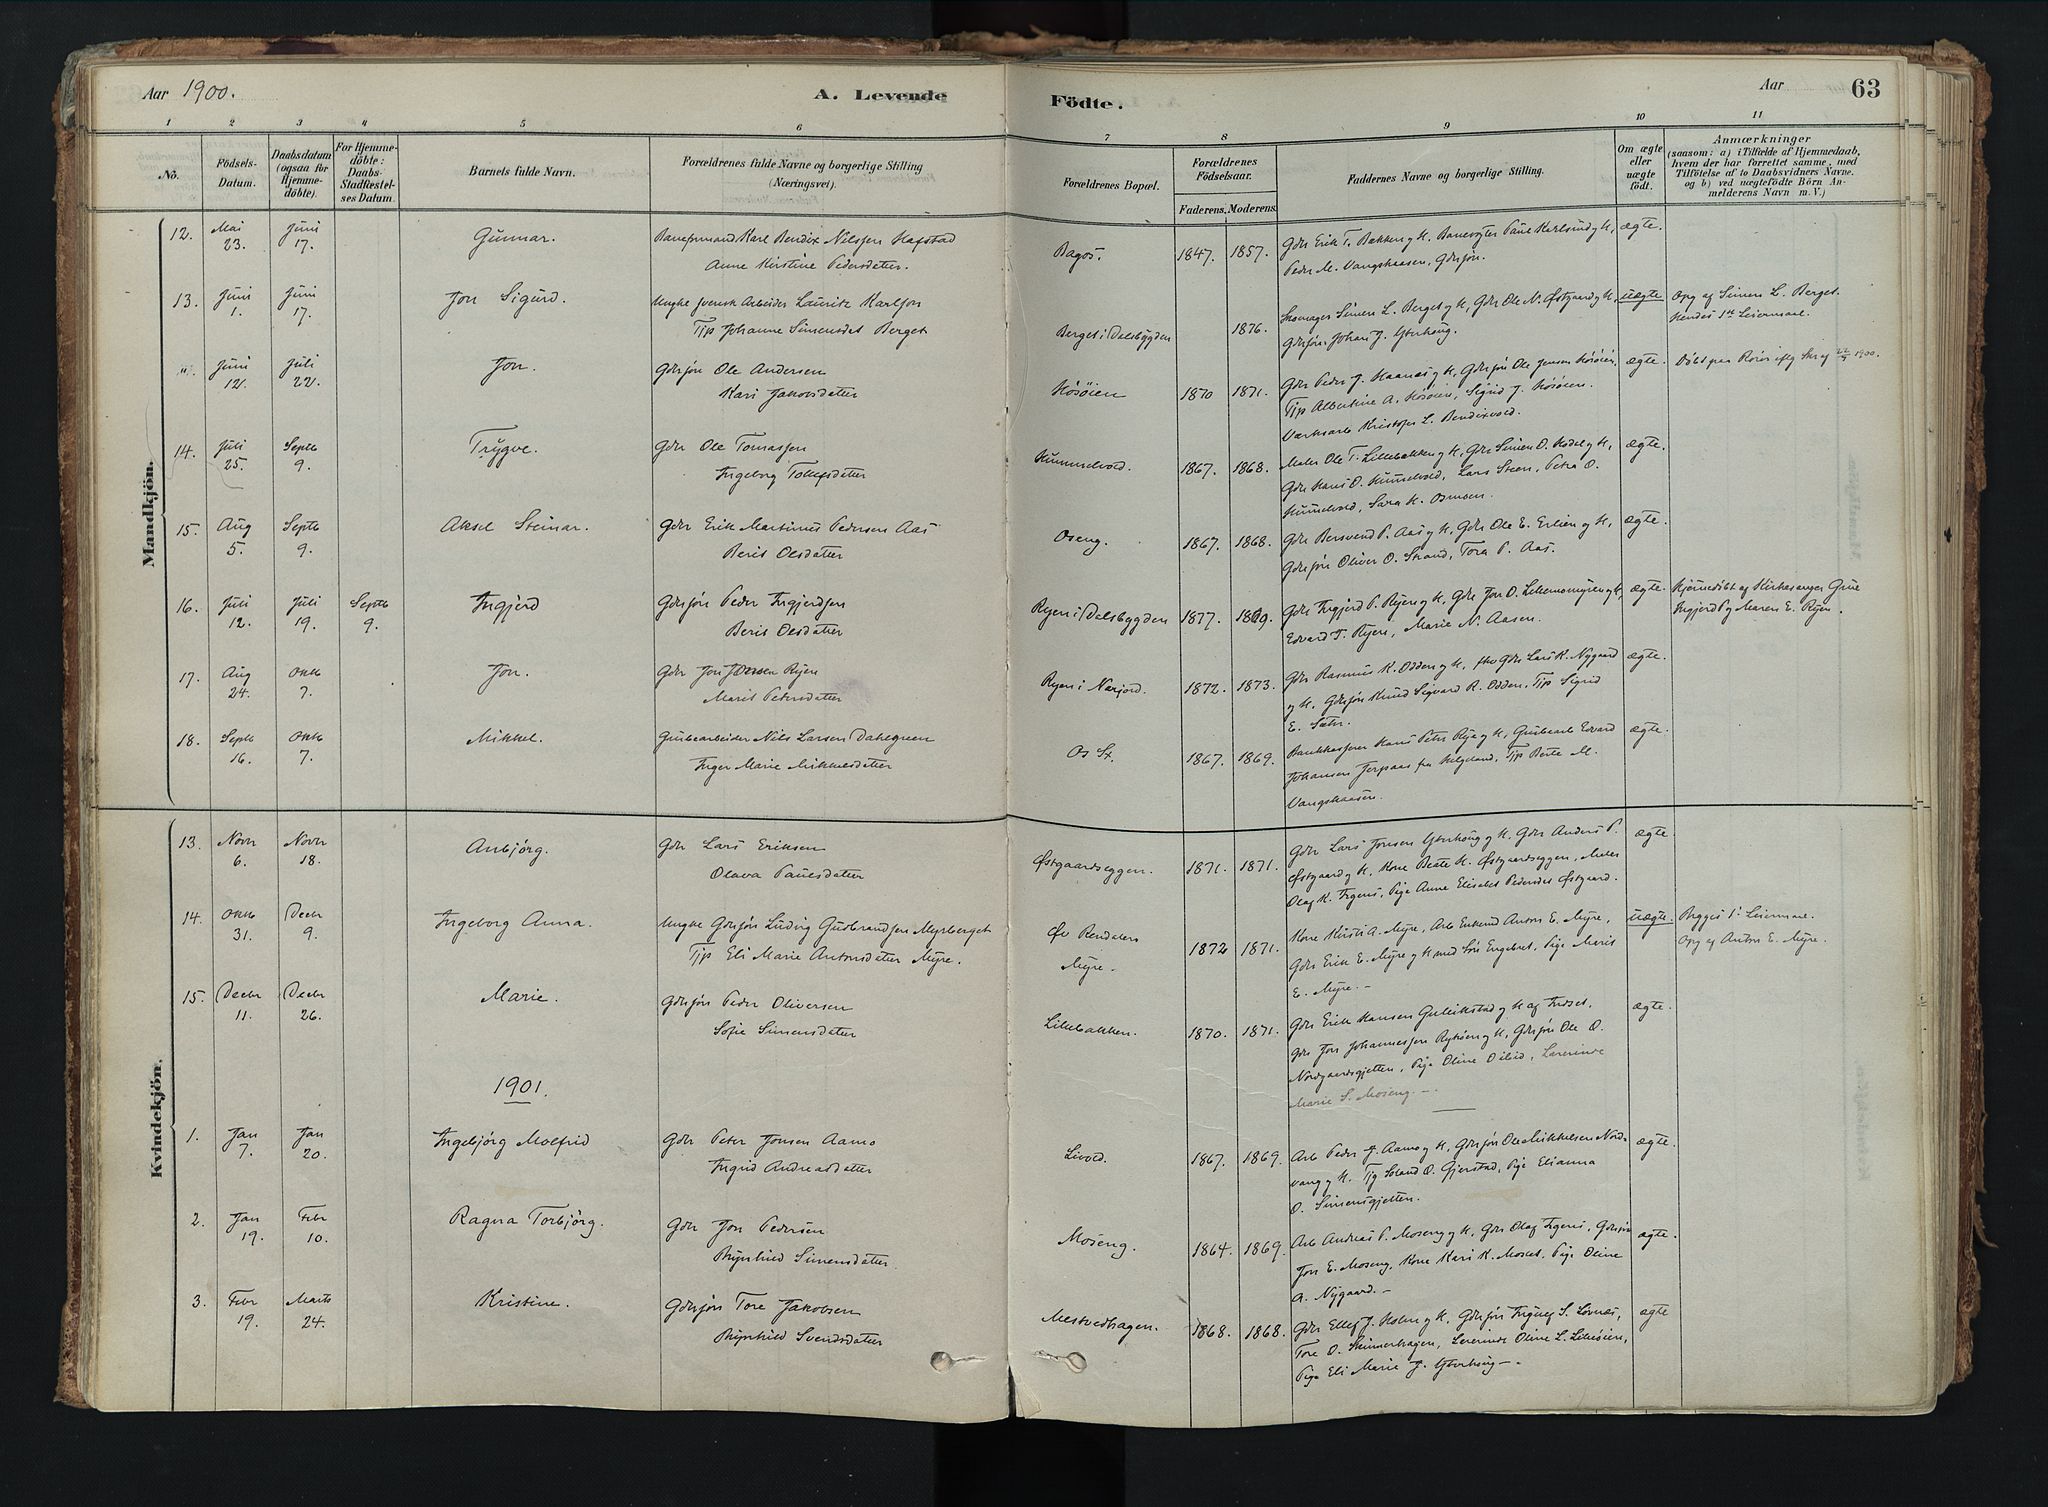 Aar 1900.
A. Levende
Födte.
Aar
63
1 2 3 4 5 6 7 8 9 10 11
No.
Födsels-
Datum.
Daabsdatum
(ogsaa for
Hjemme-
döbte).
For Hjemme-
döbte:
Daabs-
Stadfæstel-
ses Datum.
Barnets fulde Navn.
Forældrenes fulde Navne og borgerlige Stilling
(Næringsvei).
Forældrenes Bopæl.
Forældrenes
Födselsaar.
Faderens. Moderens.
Faddernes Navne og borgerlige Stilling.
Om ægte
eller
uægte
födt.
Anmærkninger
(saasom: a) i Tilfælde af Hjemmedaab,
hvem der har forrettet samme, med
Tilföielse af to Daabsvidners Navne.
og b) ved uægtefödte Börn An-
melderens Navn m. V.)
Mandkjön.
12. Mai 23. Juni 17. Gunnar. Karl Bendix Nilssen Hafstad
Anne Kirstine Pedersdatter.
Bagos. 1847. 1857. Gdr Erik T. Bakken og K, Banevogter Paul Karlsund og K,
Peder M. Vangskaasen, Gdrsøn.
ægte.
13. Juni 1. Juni 17. Jon Sigurd. Ungke svensk Arbeider Lauritz Karlson
Tjp Johanne Simensdat Berget
Berget i Dalsbygden 1876. Skomager Simen L. Berget og K, Gdr Ole N. Østgaard og K,
Gdrsøn Johan J. Ytrhaug.
uægte Opg af Simen L. Berget.
Hendes 1ste Leiermaal.
" Juni 12. Juli 22. Jon. Gdrsøn Ole Andersen
Kari Jakobsdatter
Køsøien 1870 1871. Gdr Peder J. Haanæs og K, Gdrsøn Ole Jensen Køsøien,
Tjp Albertine A. Køsøien, Sigrid J. Køsøien.
Værksarb Kristofer L. Bendixvold.
ægte. Døbt paa Røros 1900.
14. Juli 25. Septb 9. Trygve. Gdr Ole Tomassen
Ingeborg Tollefsdatter
Hummelvold. 1867. 1868. Maler Ole T. Lillebakken og K, Gdr Simen O. Hodel og K,
Gdr Hans O. Hummelvold, Lars Steen, Petra O.
Hummelvold, Sara K. Osmoen.
ægte.
15. Aug 5. Septb 9. Aksel Steinar. Gdr Erik Martinus Pedersen Aas
Berit Olsdatter
Oseng. 1867. 1868. Gdr Bersvend P. Aas og K, Gdr Ole E. Erlien og K,
Gdrsøn Oliver O. Strand, Tora P. Aas.
ægte.
16. Juli 12. Juli 19. Septb 9. Ingjerd Gdrsøn Peder Ingjerdsen
Berit Olsdatter
Ryen i Dalsbygden 1877. 1879. Gdr Ingjerd P. Ryen og K, Gdr Jon O. Lillemomyren og K,
Edvard T. Ryen, Marie N. Aasen.
ægte. Hjemmedøbt af Kirkesanger Grue
Ingjerd P og Maren E. Ryen.
17. Aug 24. Oktb 7. Jon. Gdr Jon Ryen
Marit Petersdatter
Ryen i Narjord. 1872. 1873. Gdr Rasmus K. Odden og K, fhv Gdr Lars K. Nygaard
og K, Gdrsøn Knud Sigvard R. Odden, Tjp Sigrid
E. Sætr.
ægte.
18. Septb 16. Oktb 7. Mikkel. Grubearbeider Nils Larsen Dalegnen
Inger Marie Mikkelsdatter
Os St. 1867. 1869. Hans Peter Rye og K, Grubearb Edvard
Johansen fra Helgeland, Tjp Berte M.
Vangskaasen.
ægte.
Kvindekjön.
13. Novr 6. Novr 18. Anbjørg. Gdr Lars Eriksen
Olava Paulsdatter
Østgaardseggen. 1871. 1871. Gdr Lars Jonsen Ytrhaug og K, Gdr Anders P.
Østgaard og K, Kone Beate K. Østgaardseggen, Maler
Olaf K. Trgens, Pige Anne Elisabet Pedersdat Østgaard.
ægte.
14. Oktb 31. Decbr 9. Ingeborg Anna. Ungke Gdrsøn Ludvig Gudbrandsen Myrberget
Tjp Eli Marie Antonsdatter Myre.
Øv Rendalen
Myre.
1872 1871. Kone Kirsti A. Myre, Arb Enkemd Anton E. Myre,
Gdr Erik E. Myre og K med Søn Engebret, Pige Marit
E. Myre. –
uægte. Begges 1ste Leiermaal.
Opg af Anton E. Myre.
15. Decbr 11. Decbr 26. Marie. Gdrsøn Peder Oliversen
Sofie Simensdatter
Lillebakken. 1870. 1871. Gdr Erik Hansen Guleikstad og K af Indset,
Gdr Jon Johannessen og K, Gdrsøn Ole O.
Nordgaardsgjetten, Pige Oline Oliid, Lærerinde
Marie S. Moseng. –
ægte.
1901.
1. Jan 7. Jan 20. Ingebjørg Molfrid Gdr Peter Jonsen Aamo
Ingrid Andreasdatter
Livold. 1867. 1869. Arb Peder J. Aamo og K, Gdrsøn Ole Mikkelsen Nord-
vang og K. Tjg Soland O. Gjerstad, Pige Elianna
O. Simensgjetten.
ægte.
2. Jan 19. Febr 10. Ragna Torbjørg. Gdr Jon Pedersen
Brynhild Simensdatter
Moseng. 1864. 1869. Arb Andreas P. Moseng og K, Gdr Olaf Trgens, Gdrsøn
Jon E. Moseng, Kone Kari K. Moslet, Pige Oline
A. Nygaard. –
ægte.
3. Febr 19. Marts 24. Kristine. Gdrsøn Tore Jakobsen
Brynhild Svendsdatter
Mestvedhagen. 1868. 1868. Gdr Ellef J. Holm og K, Gdrsøn S. Løvnæs,
Tore O. Skinnerhagen, Lærerinde Oline L. Lilleøien,
Pige Eli Marie J. Ytrhaug –.
ægte